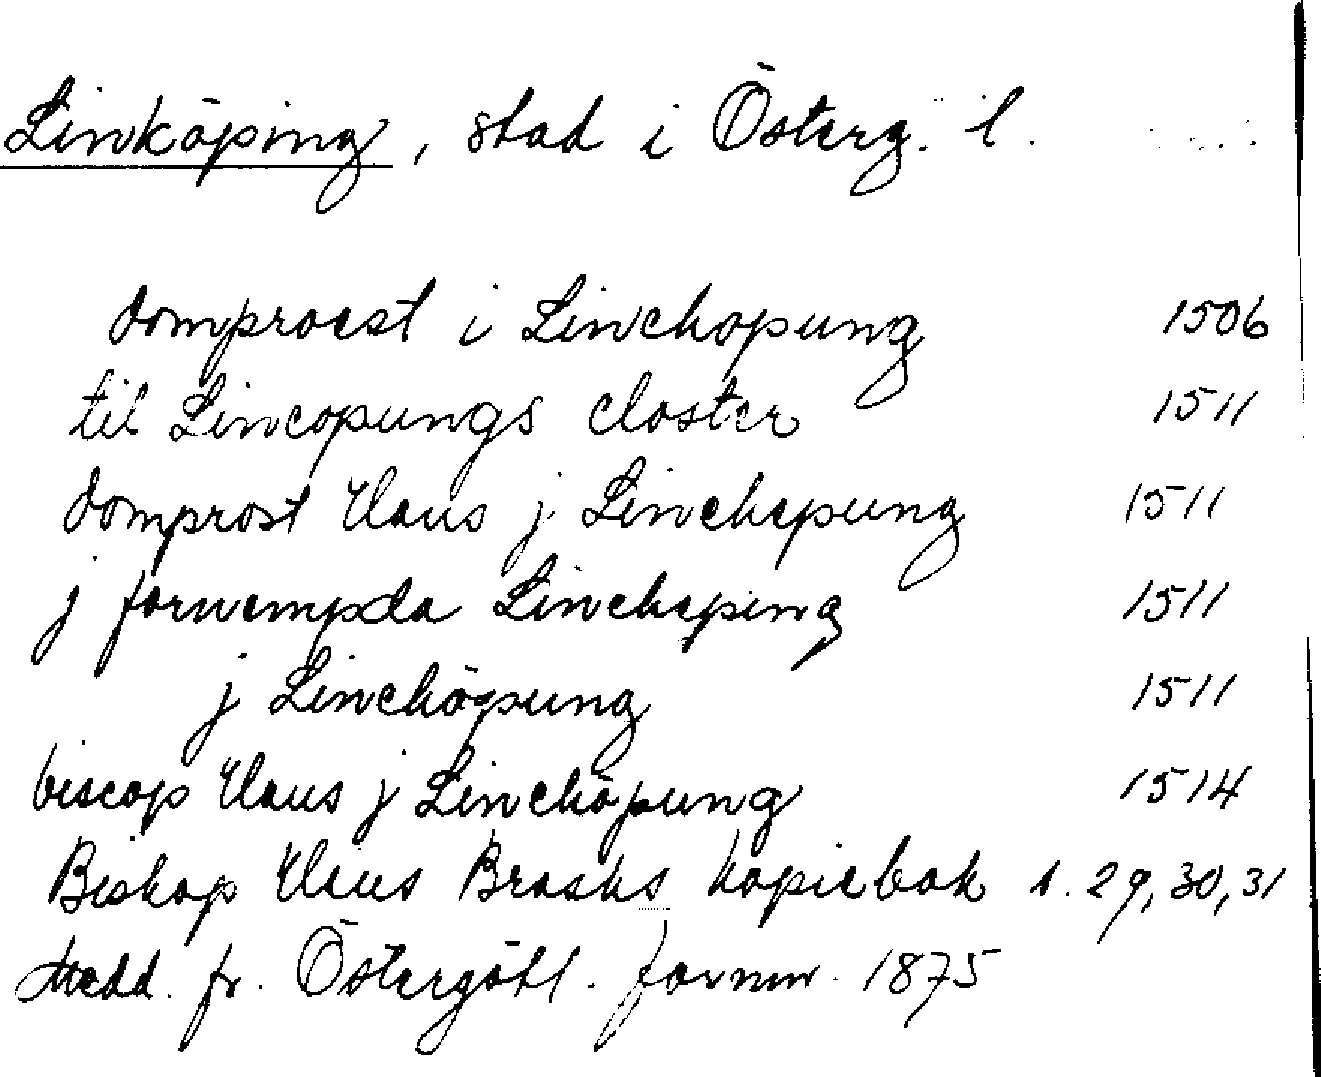 Linköping, stad i Österg. l.
domproest i Linchopung 1506
til Lincopungs closter 1511
domprost Hans j Linchepung 1511
j fornempda Lincheping 1511
j Linchöpung 1511
biscop Hans j Linchöpung 1514
Biskop Hans Brasks kopiebok s. 29, 30, 31
Medd. fr. Östergötl. fornm. 1875